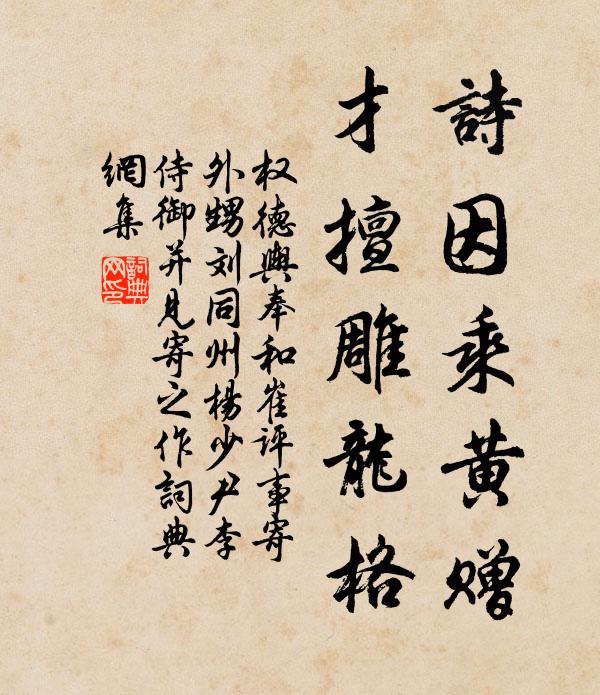 詩因乘黄贈
才擅雕龍格
权德輿奉和崔评事寄
外甥刘同州楊少尹李
侍御并見寄之作詞典
網集
詞典
网印